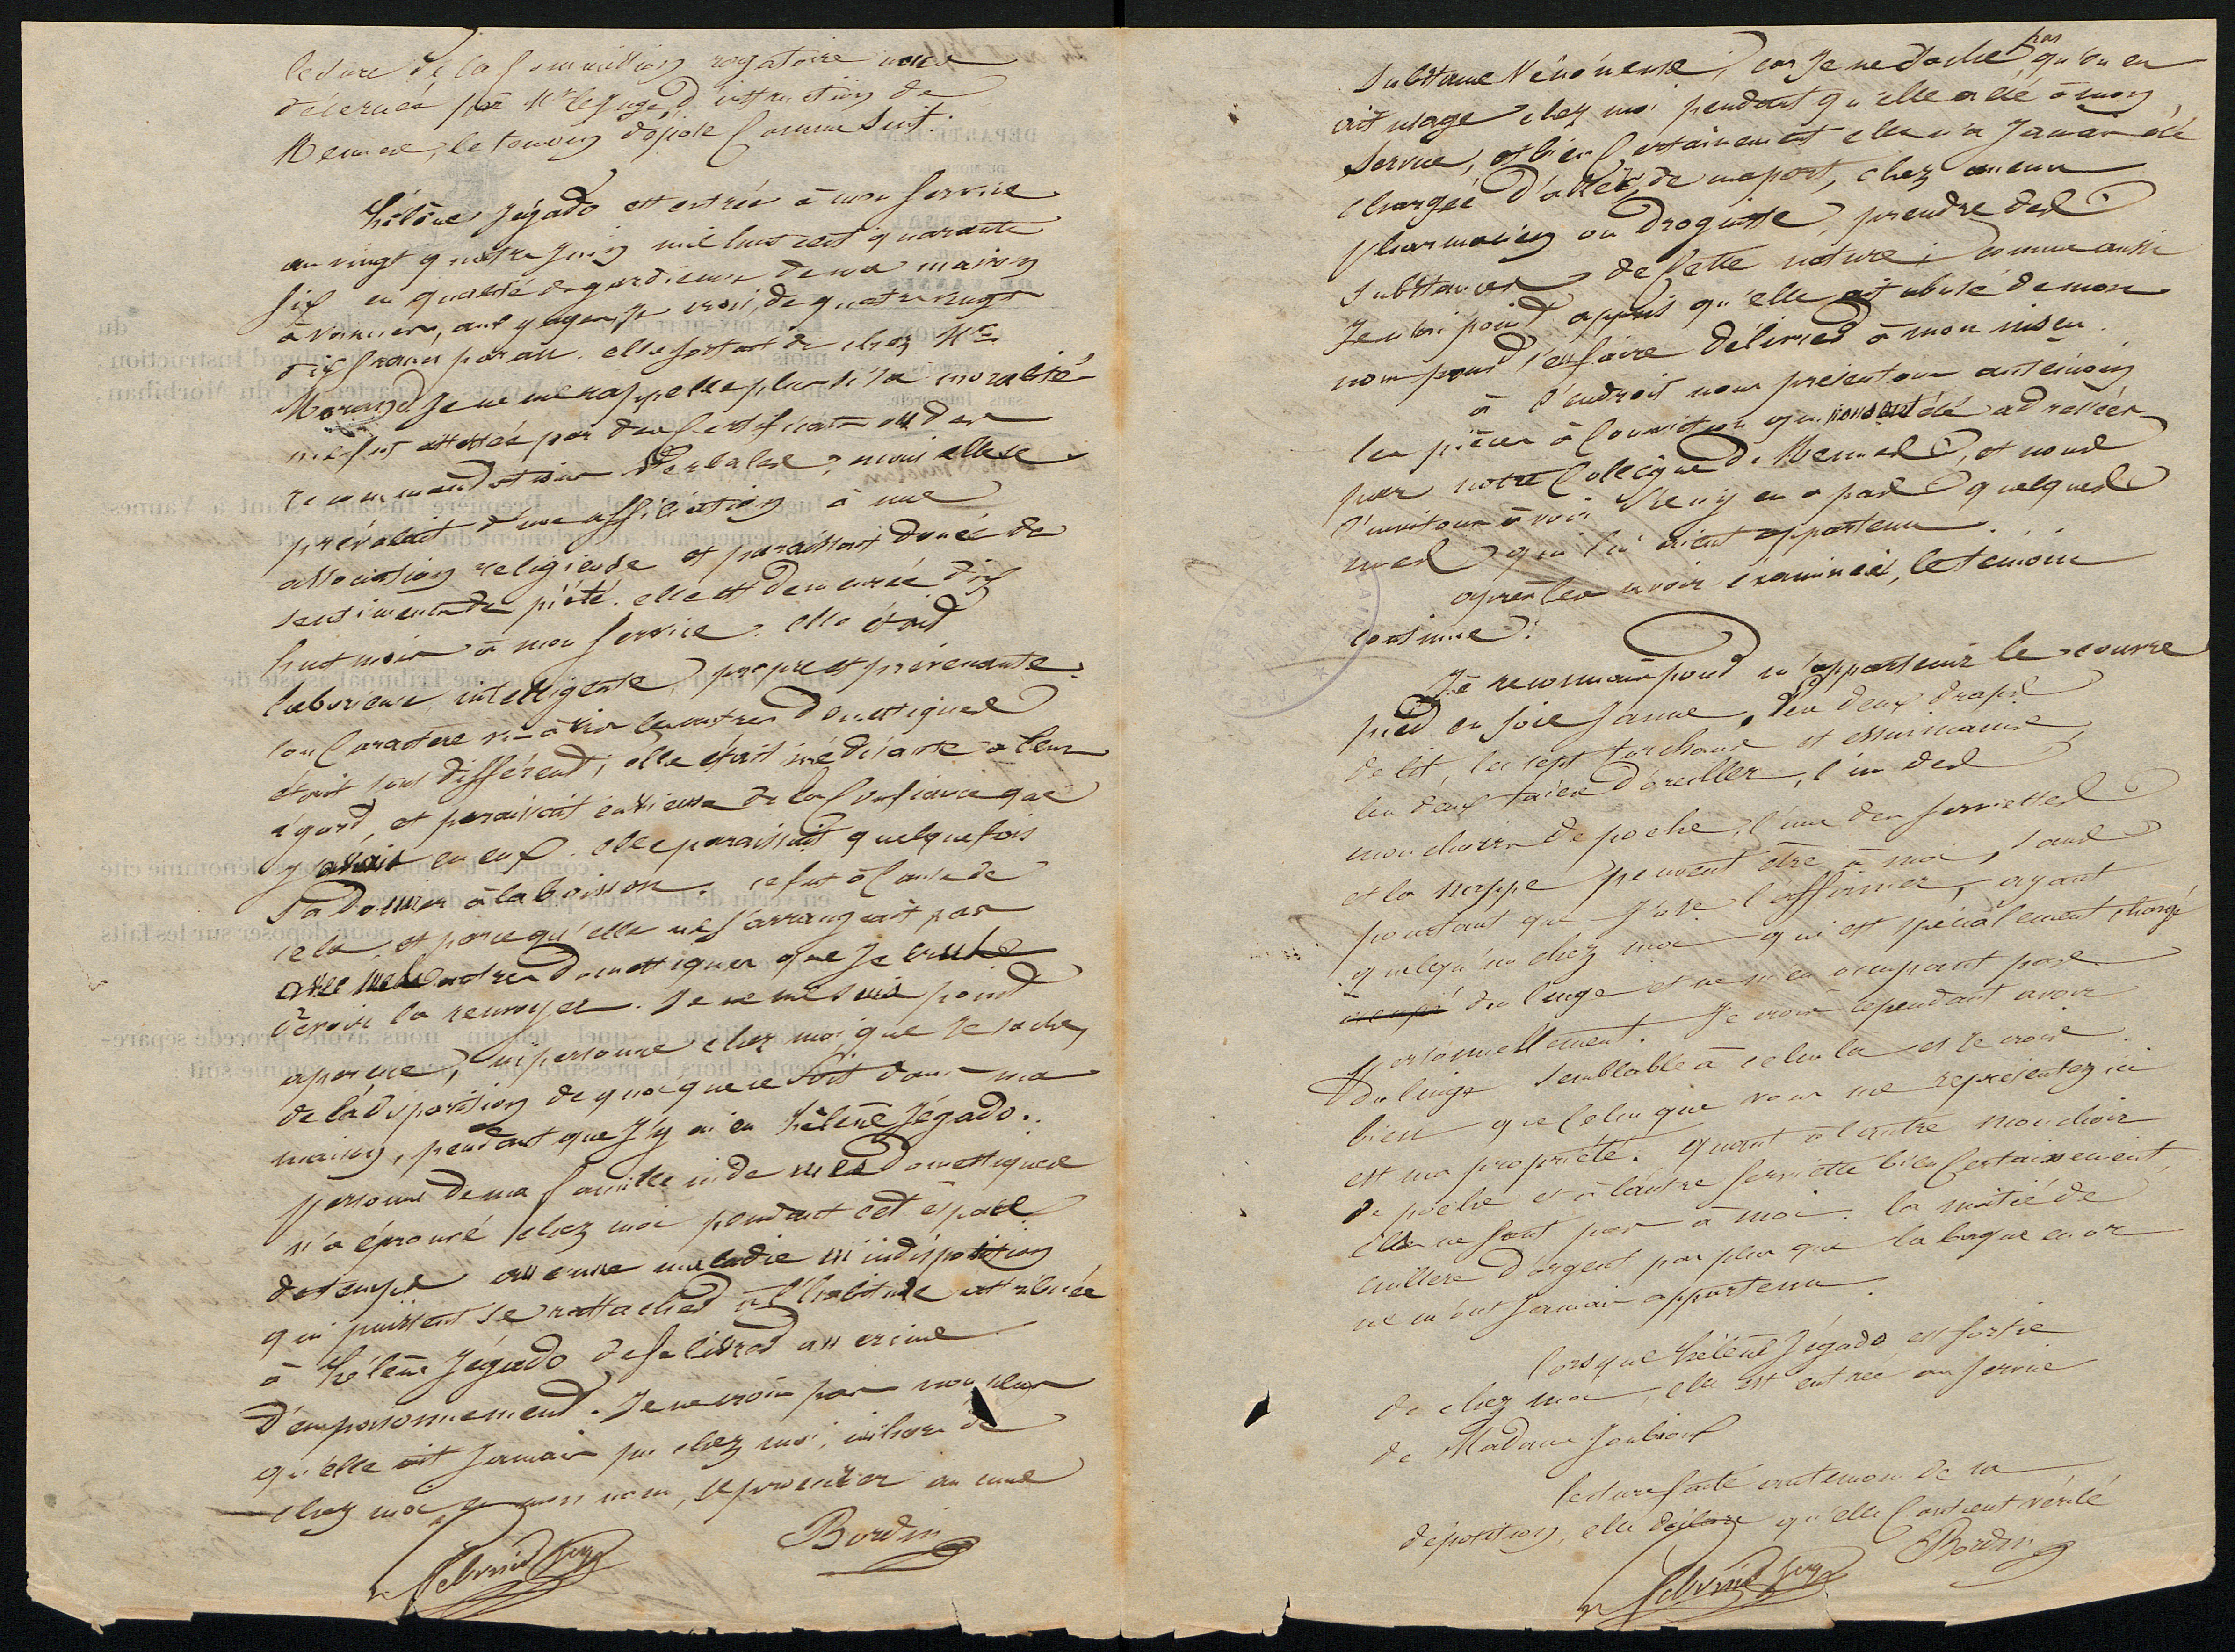 lecture de la commission rogatoire nous
décernée par Mr le Juge d'instruction de
Rennes, le témoin dépose comme suit:
hélène Jégado est entrée à mon service
au vingt quatre Juin mil huit cent quarante
six en qualité de gardienne de ma maison
à Vannes, aux gages, Je crois, de quatre vingt
dix francs par an. elle sortait de chez Mr
Morand. Je ne me rappelle plus si sa moralité
me fut attestée par des certificats ou des
recommandations Verbales; mais elle se
prévalait d'une affiliation à une
association religieuse et paraissait douée de
sentiments de piété. elle est demeurée dix
huit mois à mon service. elle était
laborieuse, intelligente, propre et prévenante.
son caractère vis-à-vis les autres domestiques
était tout différent; elle était médisante à leur
égard, et paraissait envieuse de la confiance que
J'avais en eux. elle paraissait quelquefois
s'adonner à la boisson. ce fut à cause de
cela, et parcequ'elle ne s'arrangeait pas
avec mes autres domestiques que Je crus
devoir la renvoyer. Je ne me suis point
aperçue, ni personne chez moi, que Je sache,
de la disparition de quoique ce soit dans ma
maison, pendant que J'y ai eu hélène Jégado.
personne de ma famille ni de mes domestiques
n'a éprouvé chez moi pendant cet espace
de temps aucune maladie ni indisposition
qui puissent se rattacher à l'habitude attribuée
à hélène Jégado de se livrer au crime
d'empoisonnement. Je ne crois pas non plus
qu'elle ait Jamais pu chez moi, ni hors de
chez moi en mon nom, se procurer aucune
Bordin
substance Vénéneuse, car Je ne sache pas qu'on en
ait usage chez moi pendant qu'elle a été à mon
service, et bien certainement elle n'a Jamais été
chargée d'aller, de ma part, chez aucun
pharmacien ou Droguiste, prendre des
substances de cette nature; comme aussi
Je n'ai point appris qu'elle ait abusé de mon
nom pour s'en faire délivrer à mon insçu.
à l'endroit nous présentons au témoin
les pièces à conviction qui nous ont été adressées
par notre collègue de Rennes, et nous
l'invitons à voir s'il n'y en a pas quelques
unes qui lui aient appartenu.
après les avoir examinées, le témoin
continue:
Je reconnais pour m'appartenir le couvre
pied en soie Jaune, les deux draps
de lit, les sept torchons et essuimains,
les deux taies d'oreiller, l'un des
mouchoirs de poche, l'une des serviettes
et la nappe peuvent être à moi, sans
pourtant que J'ose l'affirmer, ayant
quelqu'un chez moi qui est spécialement chargé
du linge et ne m'en occupant pas
personnellement. Je crois cependant avoir
du linge semblable à celui là et Je crois
bien que celui que vous me représentez ici
est ma propriété. quant à l'autre mouchoir
de poche et à l'autre serviette bien certainement,
ils ne sont pas à moi. la moitié de
cuillere d'argent pas plus que la bague en or
ne m'ont Jamais appartenu.
lorsque hélène Jégado est sortie
de chez moi, elle est entrée au service
de Madame Joubioux
lecture faite au témoin de sa
déposition, elle déclare qu'elle contient vérité
Bordin